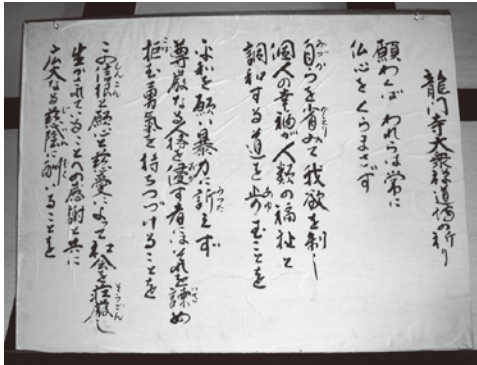 龍門寺大衆禅道場の祈り
願わくば われらは常に
仏心を くらまさず
自らを省みて我欲を制し
個人の幸福が人類の福祉と
調和する道を歩むことを
平和を願い暴力に訴えず
尊厳なる人格を侵す者には之を諫め
拒む勇氣を持ちつづけることを
この信根と願心と慈愛によって社会を荘厳し
生かされていることの感謝と共に
広大なる慈蔭に酬いることを